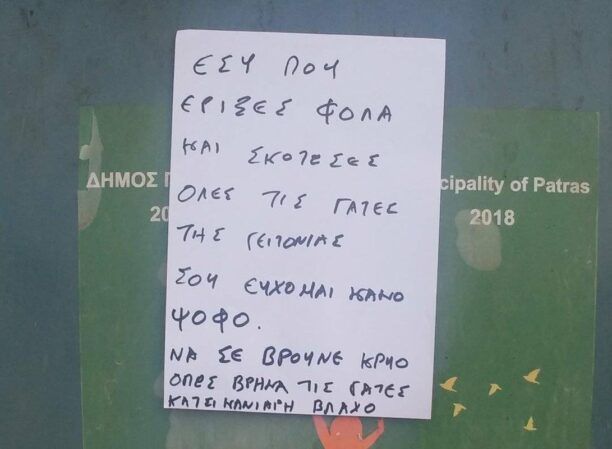 ΕΣΥ ΠΟΥ
ΕΡΙΞΕΣ ΦΟΛΑ
ΚΑΙ ΣΚΟΤΕΣΕΣ
ΟΛΕΣ ΤΙΣ ΓΑΤΕΣ
ΤΗΣ ΓΕΙΤΟΝΙΑΣ
ΣΟΥ ΕΥΧΟΜΑΙ ΚΑΝΟ
ΨΟΦΟ.
ΝΑ ΣΕ ΒΡΟΥΝΕ ΚΡΥΟ
ΟΠΟΣ ΒΡΗΚΑ ΤΙΣ ΓΑΤΕΣ
ΒΛΑΧΟ
ΔΗΜΟΣ
20
cipality of Patras
2018